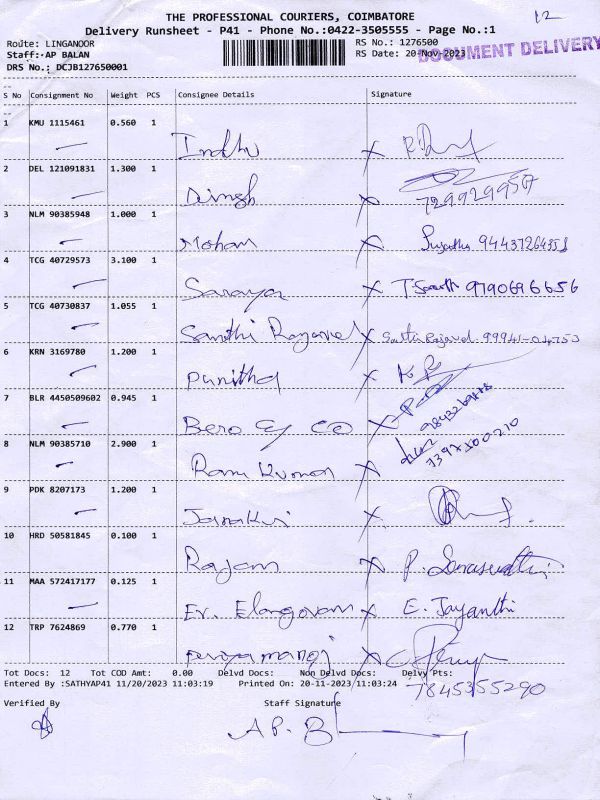 12
THE PROFESSIONAL COURIERS, COIMBATORE
Delivery Runsheet - P41 - Phone No.:0422-3505555 - Page No.:1
Route: LINGANOOR RS No.: 1276500
Staff:-AP BALAN RS Date: 20-Nov-2023
DOCUMENT DELIVERY
DRS No.: DCJB127650001
S No Consignment No Weight PCS Consignee Details Signature
1 KMU 1115461 0.560 1
Indhu x
2 DEL 121091831 1.300 1
Dinesh x 7299299507
3 NLM 90385948 1.000 1
Mohan x Sujatha 9443726435
4 TCG 40729573 3.100 1
Saranya x 9790696656
5 TCG 40730837 1.055 1
Santhi Rajavel x Santhi Rajavel. 99941-04753
6 KRN 3169780 1.200 1
Punitha x
7 BLR 4450509602 0.945 1
Bero & Co x
8 NLM 90385710 2.900 1
Ram Kumar x
9 PDK 8207173 1.200 1
Janaki x
10 HRD 50581845 0.100 1
Rajam x P. Saraswathi
11 MAA 572417177 0.125 1
Er. Elangovan x E. Jayanthi
12 TRP 7624869 0.770 1
x
Tot Docs: 12 Tot COD Amt: 0.00 Delvd Docs: Non Delvd Docs: Delvy Pts:
7845355290
Entered By :SATHYAP41 11/20/2023 11:03:19 Printed On: 20-11-2023 11:03:24
Verified By Staff Signature
A.P. B